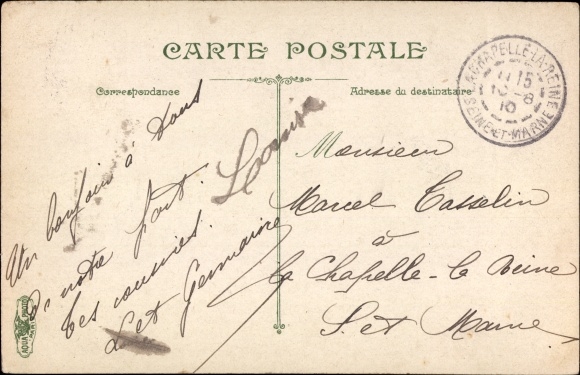 CARTE POSTALE
Correspondance
Adresse du destinataire
LA CHAPELLE-LA-REINE
SEINE-ET-MARNE
Un bonjour à tous
de notre part.
Tes cousines.
L et Germaine
Louisa
Monsieur
Marcel Tasselin
à
La Chapelle-la Reine
S. et Marne